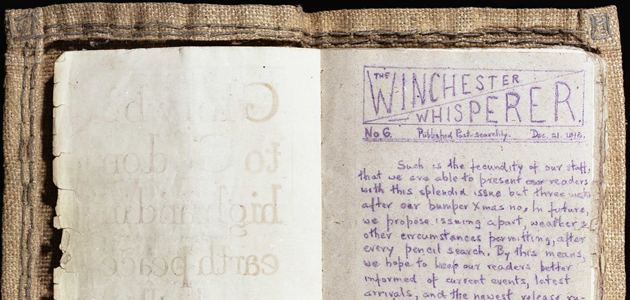 THE
WINCHESTER
WHISPERER.
No 6. Published Post-searchly. Dec. 21.
Such is the fecundity of our staff,
that we are able to present our readers
with this splendid issue but three
after our bumper Xmas no. In future,
we propose issuing apart, weather &
other circumstances permitting, after
every pencil search. By this means,
we hope to keep our readers better
informed of current events, latest
arrivals, and the newest release ru-